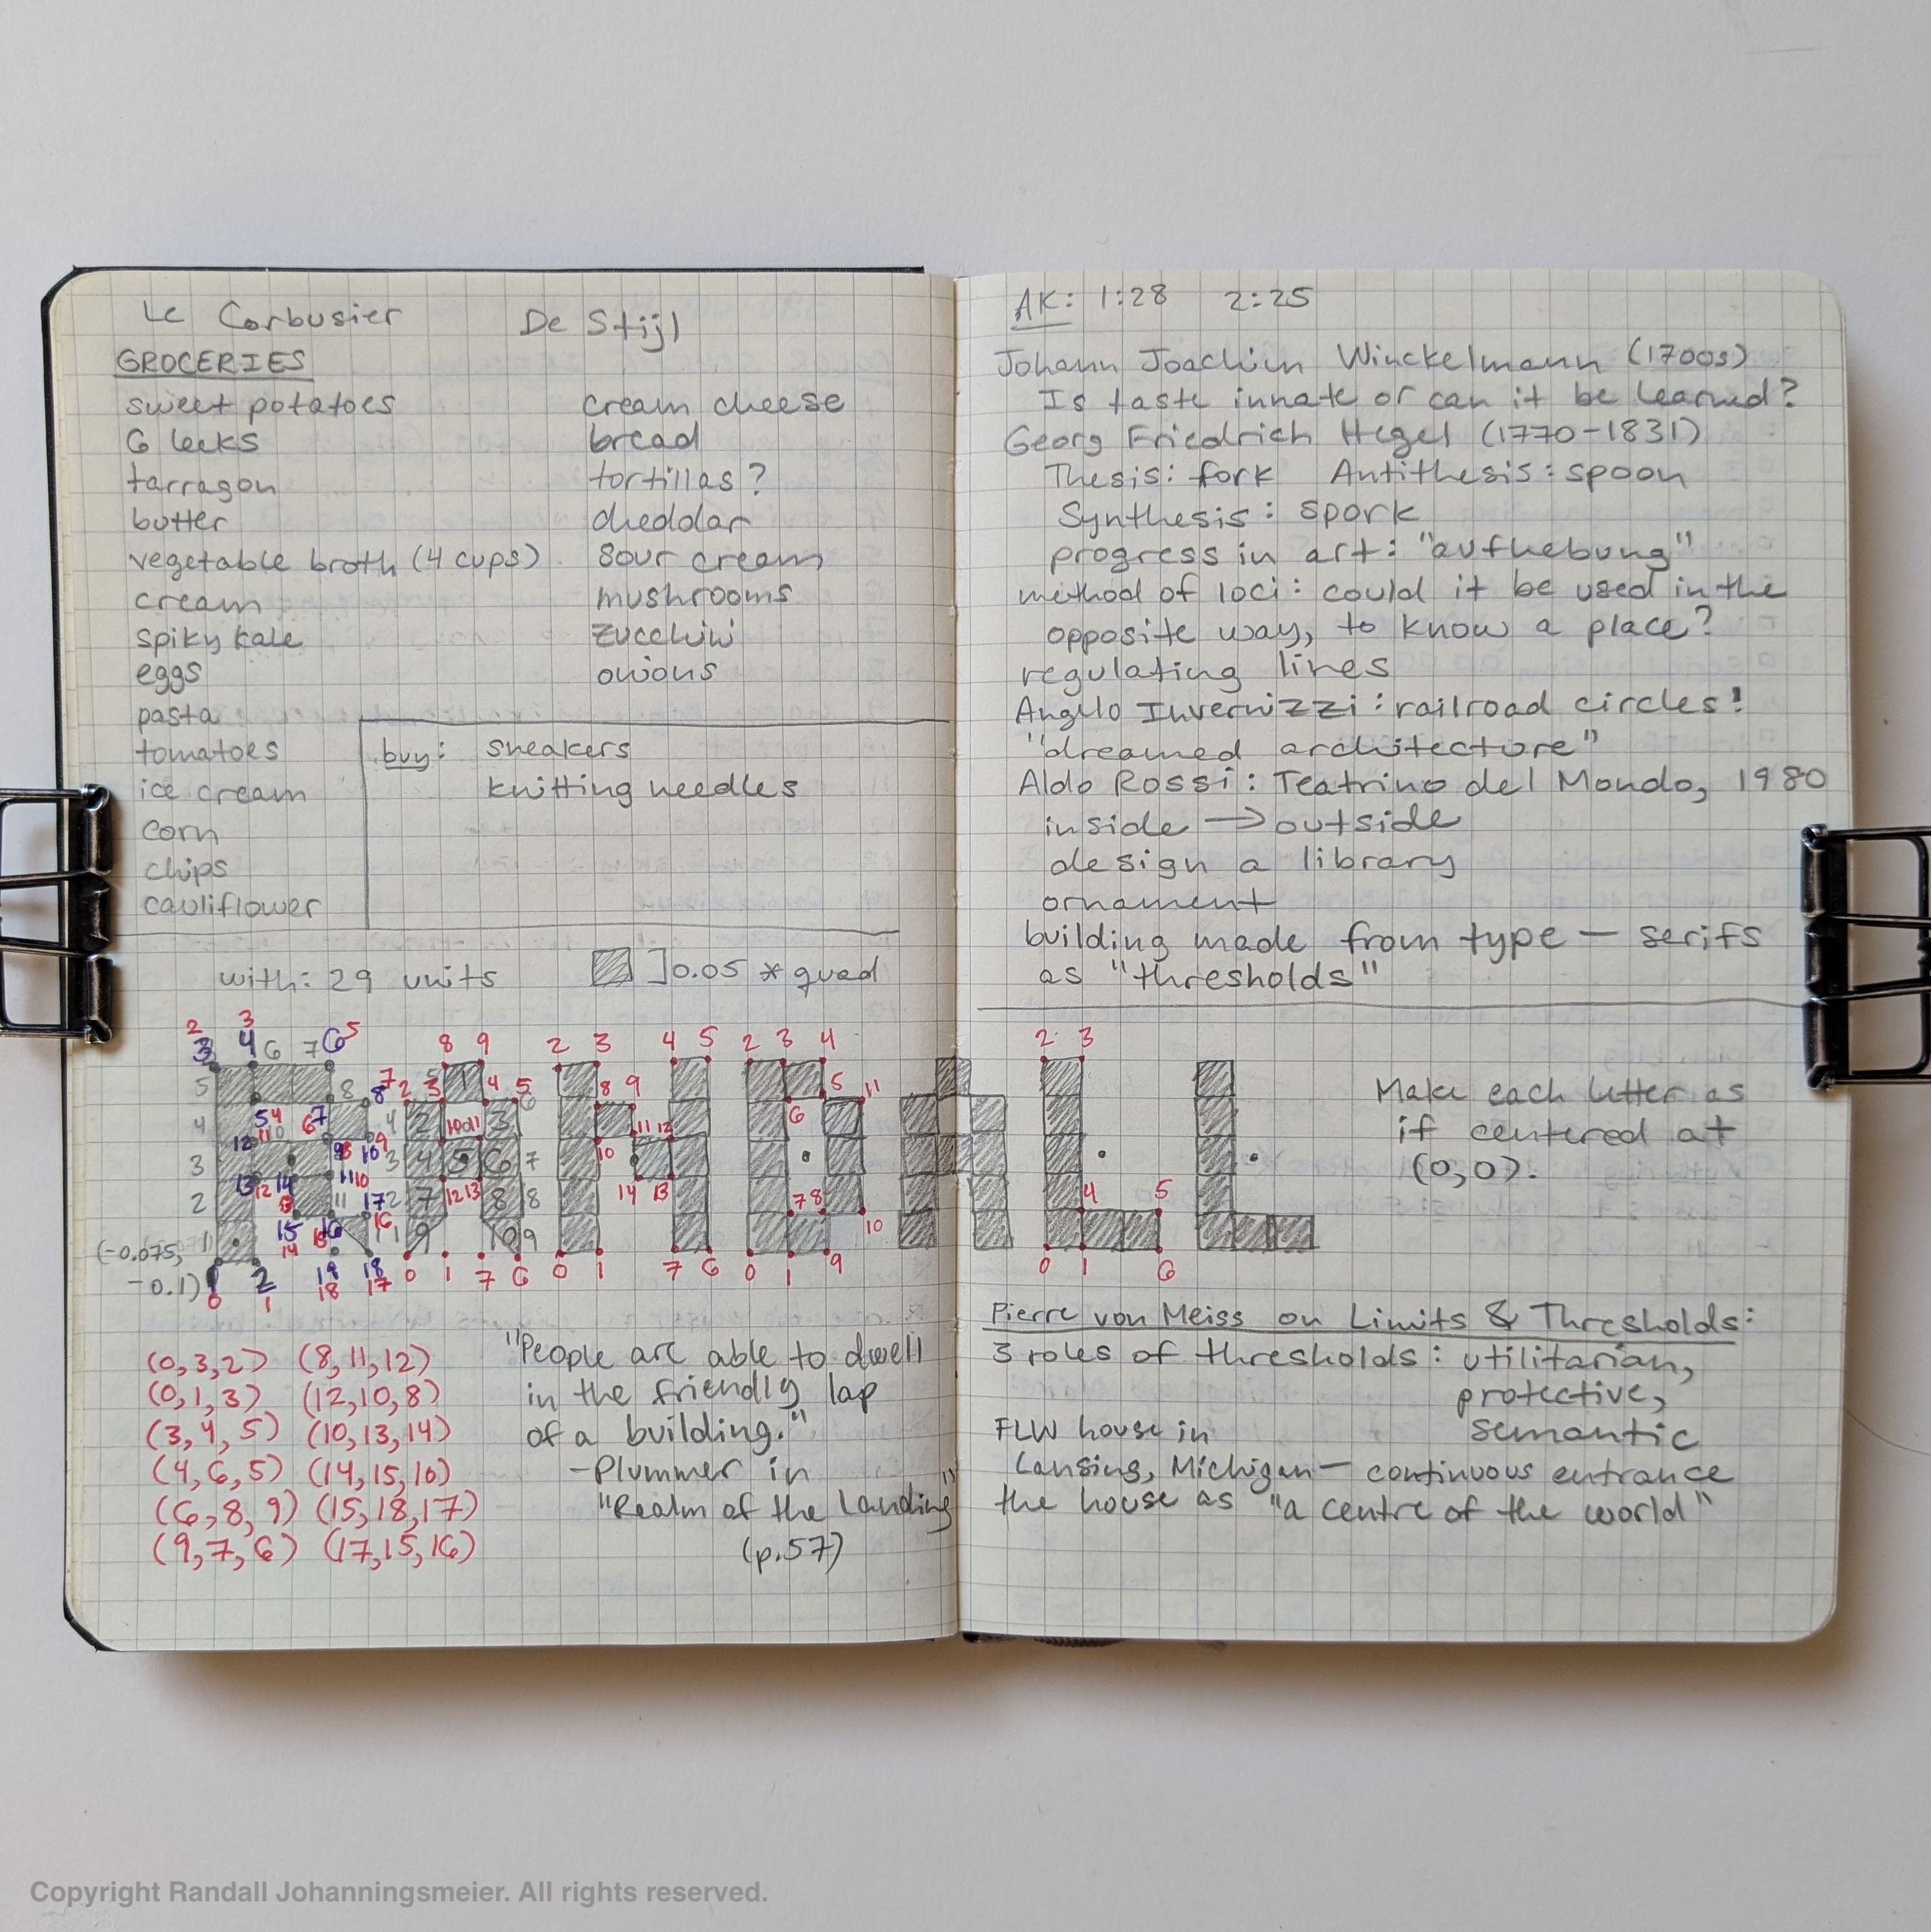 Le Corbusier
De Stijl
GROCERIES
sweet potatoes
6 leeks
tarragon
butter
vegetable broth (4 cups)
cream
spiky kale
eggs
pasta
tomatoes
ice cream
corn
chips
cauliflower
cream cheese
bread
tortillas?
cheddar
sour cream
mushrooms
zucchini
onions
buy: sneakers
knitting needles
with: 29 units
0.05 * quad
2 3 5
3 4 6 7 6
8 9 2 3 4 5 2 3 4
(-0.075,
-0.1)
0 1 18 17 0 1 7 6 0 1 7 6 0 1 9
(0,3,2) (8,11,12)
(0,1,3) (12,10,8)
(3,4,5) (10,13,14)
(4,6,5) (14,15,10)
(6,8,9) (15,18,17)
(9,7,6) (17,15,16)
"People are able to dwell
in the friendly lap
of a building."
-Plummer in
"Realm of the Landing"
(p.57)
AK: 1:28 2:25
Johann Joachim Winckelmann (1700s)
Is taste innate or can it be learned?
Georg Friedrich Hegel (1770-1831)
Thesis: fork Antithesis: spoon
Synthesis: spork
progress in art: "aufhebung"
method of loci: could it be used in the
opposite way, to know a place?
regulating lines
Angelo Invernizzi: railroad circles!
"dreamed architecture"
Aldo Rossi: Teatrino del Mondo, 1980
inside → outside
design a library
ornament
building made from type — serifs
as "thresholds"
2 3
4 5
0 1 6
Make each letter as
if centered at
(0,0).
Pierre von Meiss on Limits & Thresholds:
3 roles of thresholds: utilitarian,
protective,
semantic
FLW house in
Lansing, Michigan — continuous entrance
the house as "a centre of the world"
Copyright Randall Johanningsmeier. All rights reserved.